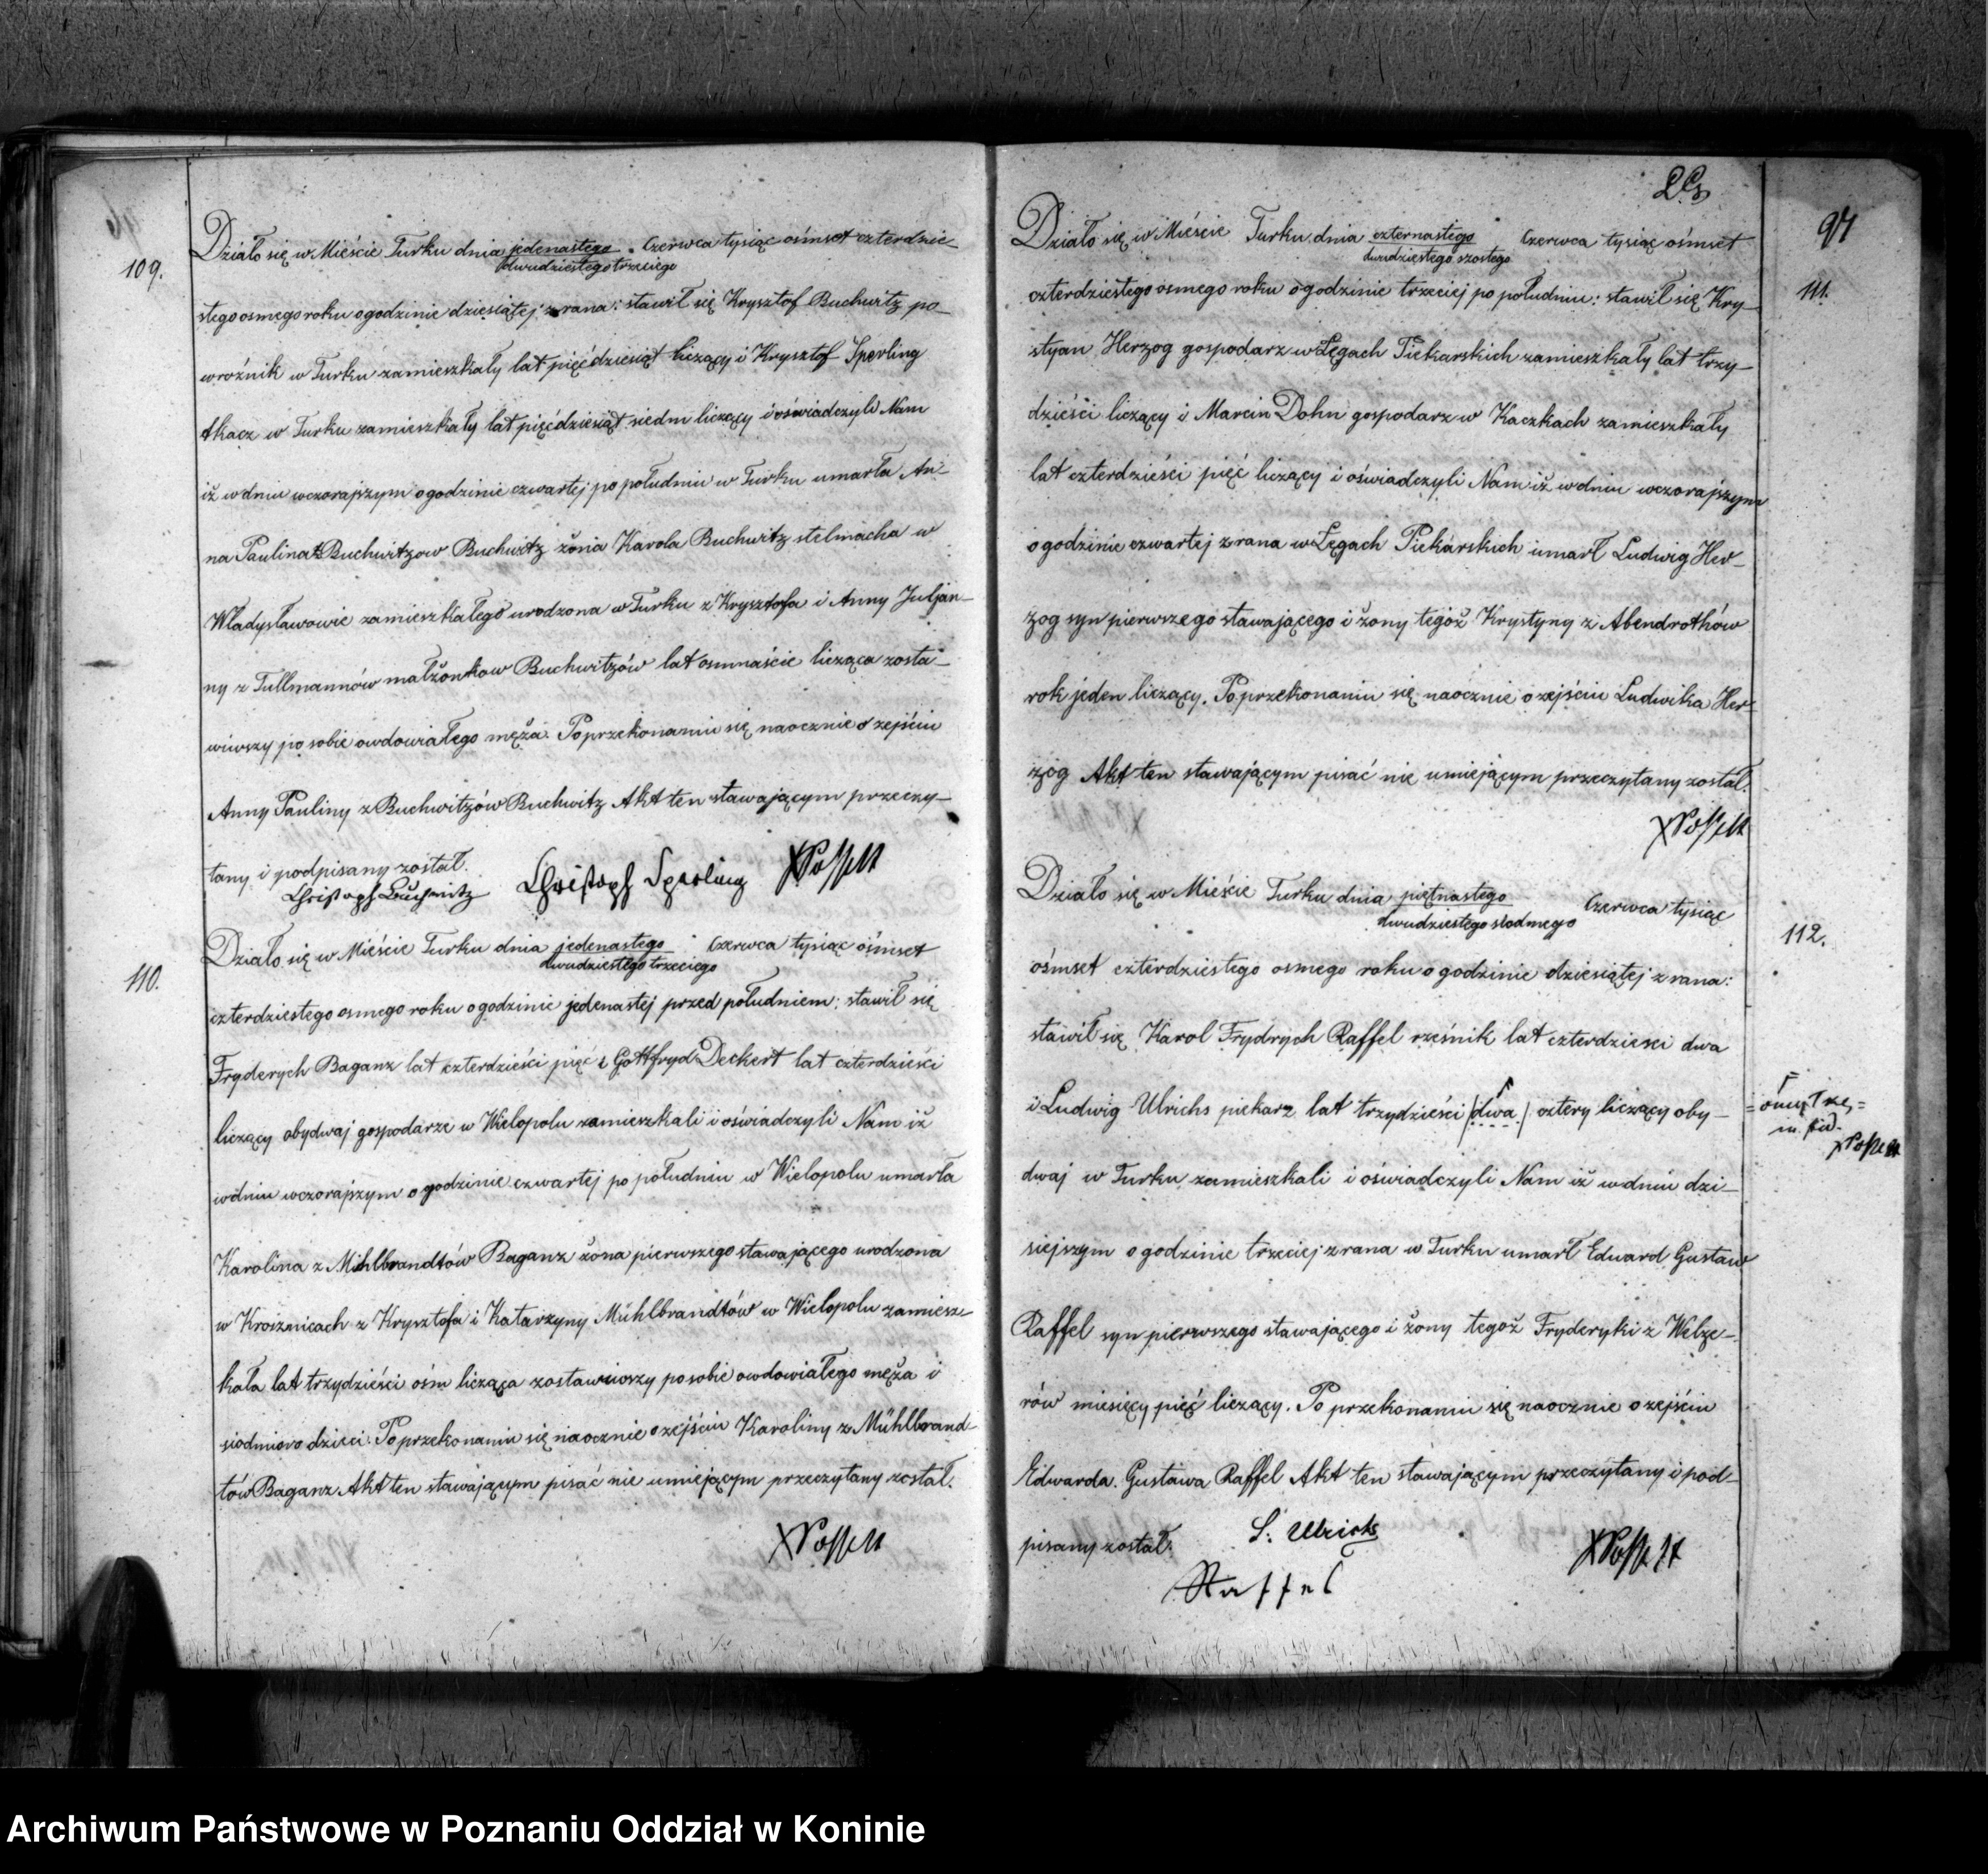 109.
Działo się w Mieście Turku dnia jedenastego Czerwca tysiąc ośmset czterdzie-
dwudziestego trzeciego
stego osmego roku o godzinie dziesiątej z rana: stawił się Krysztof Buchwitz po-
wroźnik w Turku zamieszkały lat pięćdziesiąt liczący i Krysztof Sperling
tkacz w Turku zamieszkały lat pięćdziesiąt siedm liczący i oświadczyli Nam
iż w dniu wczorajszym o godzinie czwartej po południu w Turku umarła An-
na Paulina z Buchwitzow Buchwitz żona Karola Buchwitz stelmacha w
Władysławowie zamieszkałego urodzona w Turku z Krysztofa i Anny Juljan-
ny z Tullmannów małżonkow Buchwitzów lat osmnaście licząca zosta-
wiwszy po sobie owdowiałego męża. Po przekonaniu się naocznie o zejściu
Anny Pauliny z Buchwitzów Buchwitz Akt ten stawającym przeczy-
tany i podpisany został.
Christoph Buchwitz Christoph Sperling Posselt
110.
Działo się w Mieście Turku dnia jedenastego Czerwca tysiąc ośmset
dwudziestego trzeciego
czterdziestego osmego roku o godzinie jedenastej przed południem: stawił się
Fryderych Baganz lat czterdzieści pięć i Gottfryd Deckert lat czterdzieści
liczący obydwaj gospodarze w Wielopolu zamieszkali i oświadczyli Nam iż
w dniu wczorajszym o godzinie czwartej po południu w Wielopolu umarła
Karolina z Mihlbrandtów Baganz żona pierwszego stawającego urodzona
w z Krysztofa i Katarzyny Mühlbrandtów w Wielopolu zamiesz-
kała lat trzydzieści ośm licząca zostawiwszy po sobie owdowiałego męża i
siedmioro dzieci. Po przekonaniu się naocznie o zejściu Karoliny z Mühlbrand-
tów Baganz Akt ten stawającym pisać nie umiejącym przeczytany został.
Posselt
97
111.
Działo się w Mieście Turku dnia czternastego Czerwca tysiąc ośmset
dwudziestego szostego
czterdziestego osmego roku o godzinie trzeciej po południu: stawił się Kry-
styan Herzog gospodarz w Łęgach Piekarskich zamieszkały lat trzy-
dzieści liczący i Marcin Dohn gospodarz w Kaczkach zamieszkały
lat czterdzieści pięć liczący i oświadczyli Nam iż w dniu wczorajszym
o godzinie czwartej z rana w Łęgach Piekarskich umarł Ludwig Her-
zog syn pierwszego stawającego i żony tegoż Krystyny z Abendrothów
rok jeden liczący. Po przekonaniu się naocznie o zejściu Ludwika Her-
zog Akt ten stawającym pisać nie umiejącym przeczytany został.
Posselt
112.
Działo się w Mieście Turku dnia piętnastego Czerwca tysiąc
dwudziestego siodmego
ośmset czterdziestego osmego roku o godzinie dziesiątej z rana:
stawił się Karol Frydrych Raffel rzeźnik lat czterdziesci dwa
i Ludwig Ulrichs piekarz lat trzydzieści (dwa) cztery liczący oby-
Posselt
dwaj w Turku zamieszkali i oświadczyli Nam iż w dniu dzi-
siejszym o godzinie trzeciej z rana w Turku umarł Eduard Gustaw
Raffel syn pierwszego stawającego i żony tegoż Fryderyki z Welze-
rów miesięcy pięć liczący. Po przekonaniu się naocznie o zejściu
Edwarda Gustawa Raffel Akt ten stawającym przeczytany i pod-
pisany został. L. Ulrichs Posselt
Raffel
Archiwum Państwowe w Poznaniu Oddział w Koninie